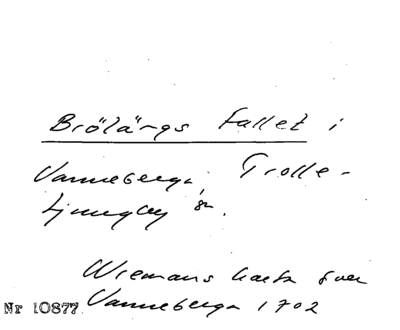 Brölärgs fallet i
Vanneberga, Trolle-
Ljungby sn.
Wiemans karta över
Vanneberga 1702
Nr 10877